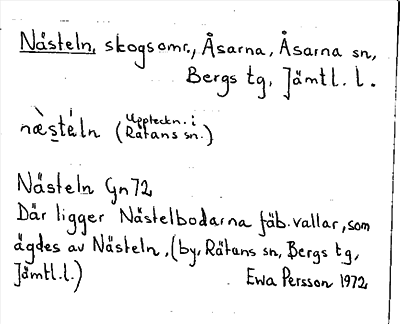 Nästeln, skogsomr., Åsarna, Åsarna sn,
Bergs tg, Jämtl. l.
næ̀stéln (Uppteckn. i
Rätans sn.)
Nästeln Gn72
Där ligger Nästelbodarna fäb.vallar, som
ägdes av Nästeln, (by, Rätans sn, Bergs tg,
Jämtl.l.) Ewa Persson 1972